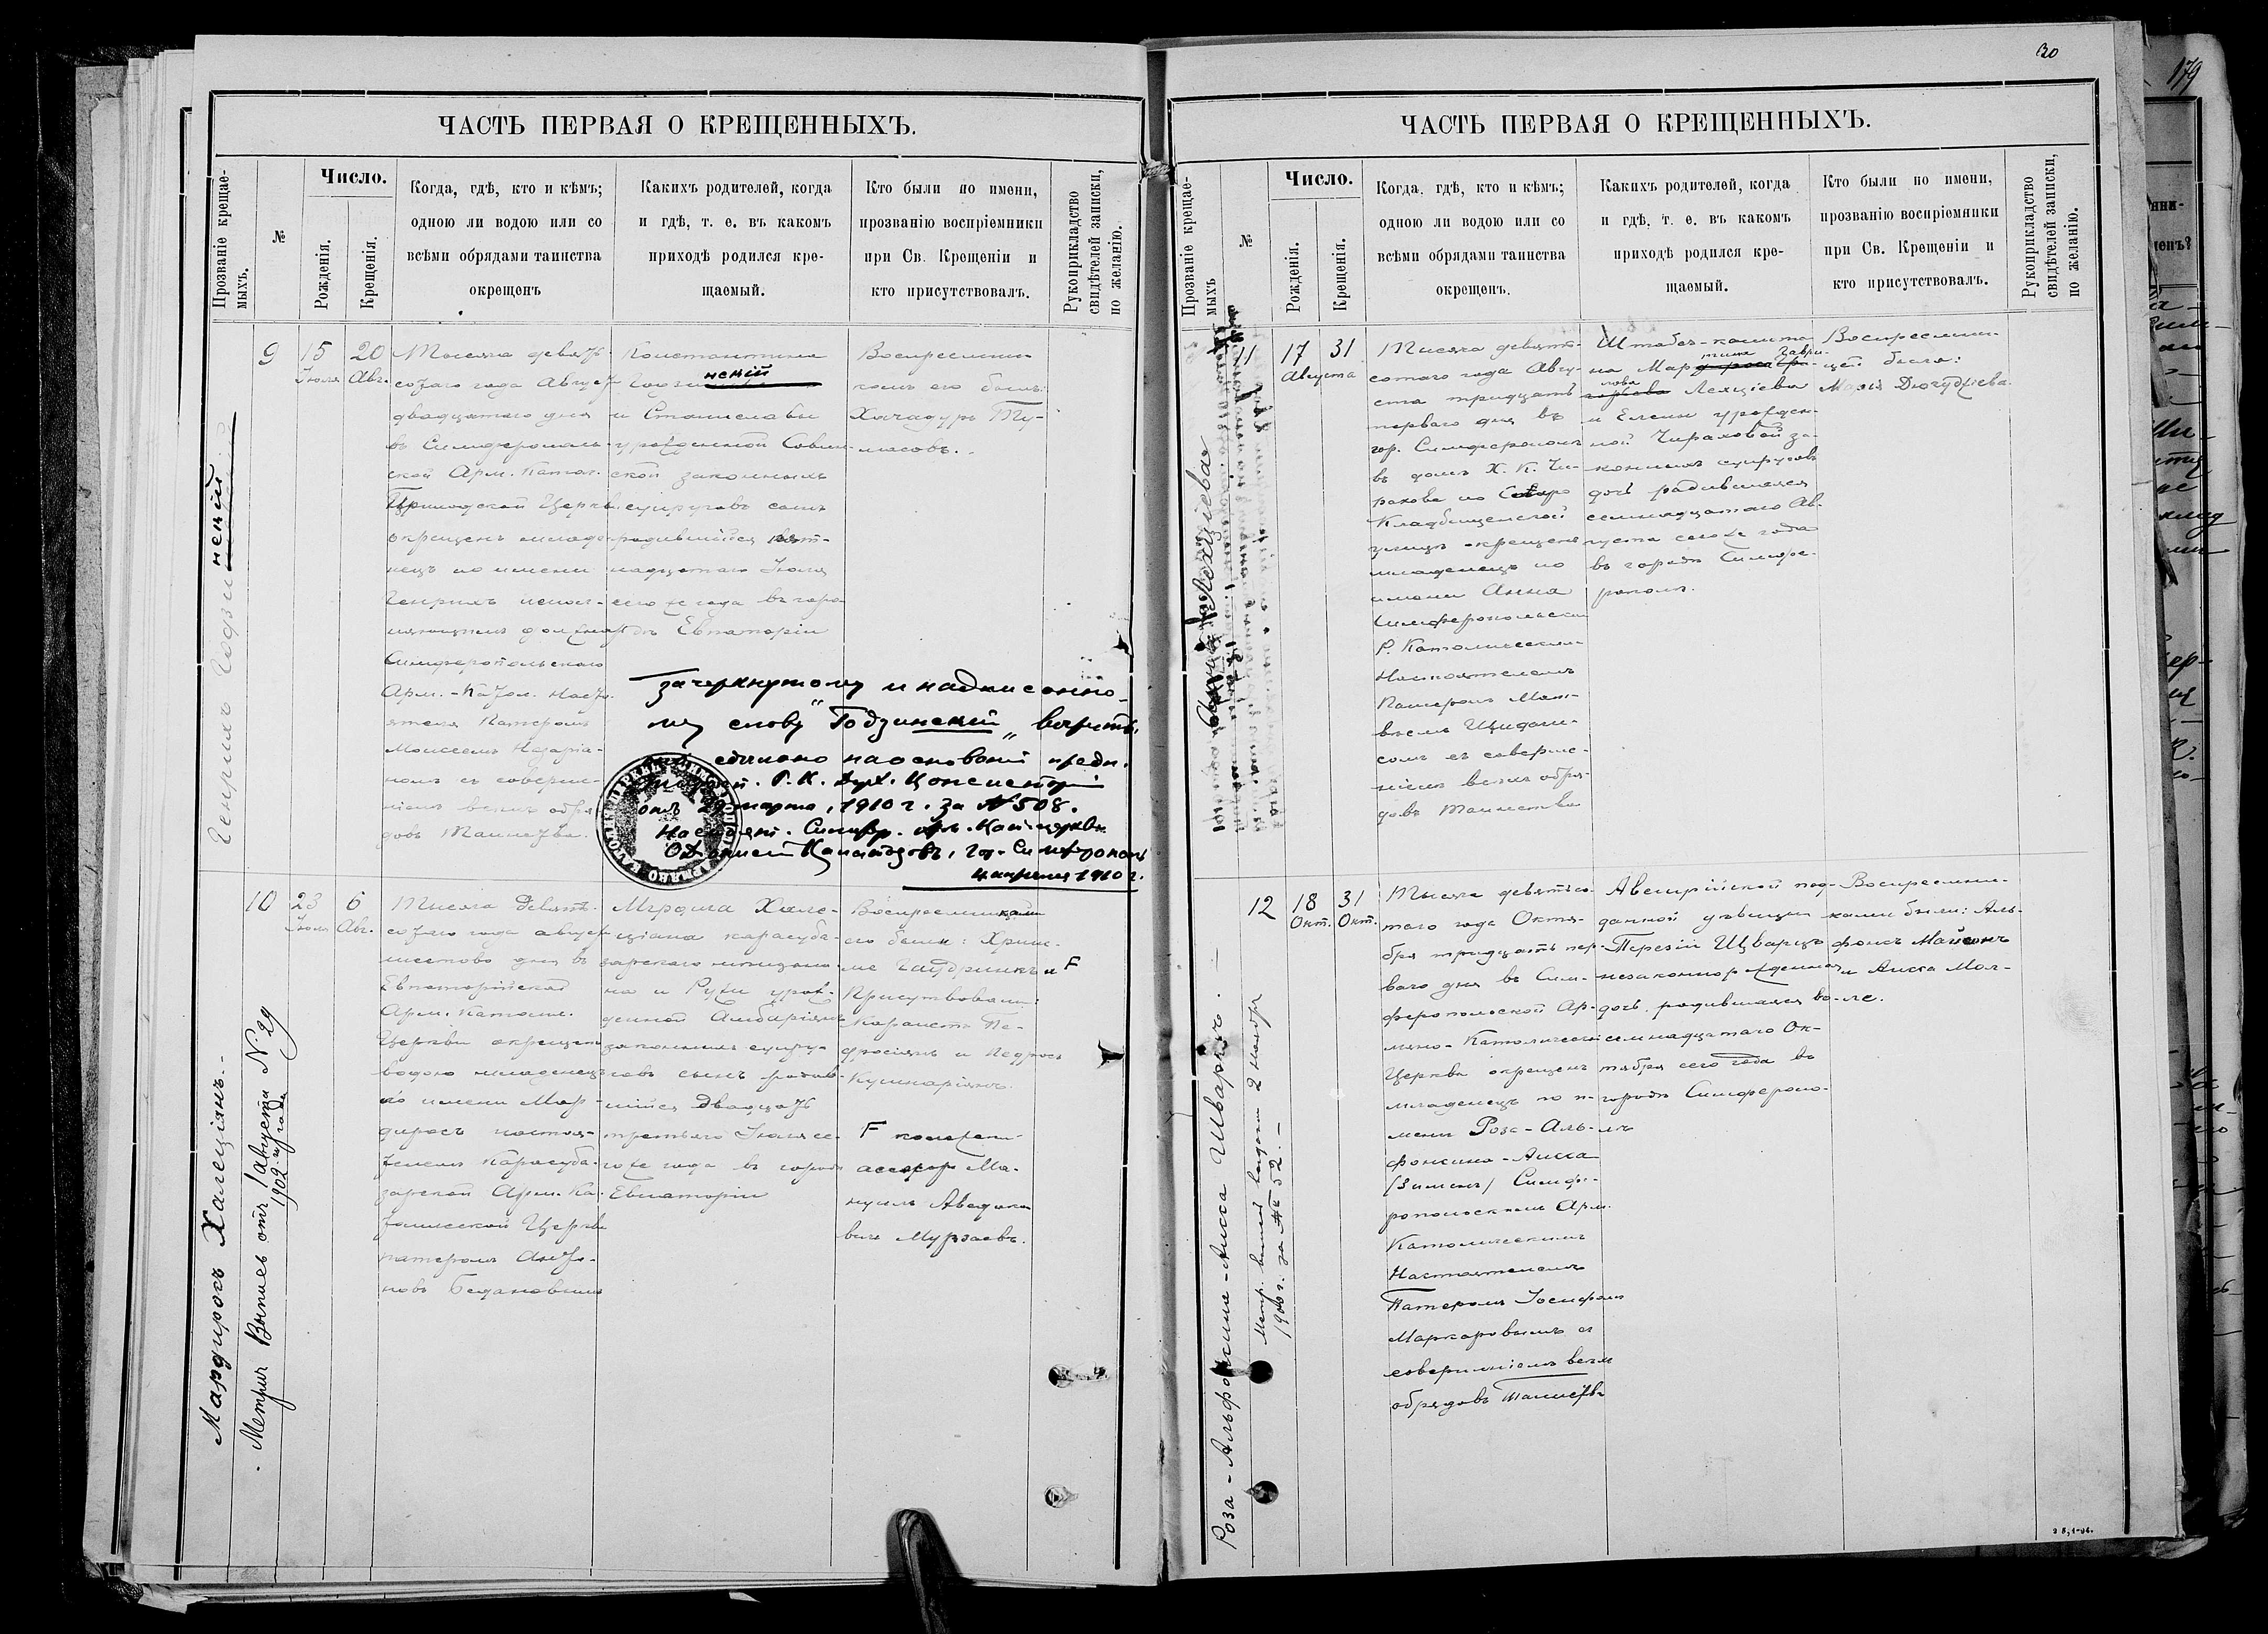 ЧАСТЬ ПЕРВАЯ О КРЕЩЕННЫХЪ.
Прозваніе крещае-
мыхъ.
№
Число.
Рожденія.
Крещенія.
Когда, гдѣ, кто и кѣмъ;
одною ли водою или со
всѣми обрядами таинства
окрещенъ
Какихъ родителей, когда
и гдѣ, т. е. въ какомъ
приходѣ родился кре-
щаемый.
Кто были по имени,
прозванію воспріемники
при Св. Крещеніи и
кто присутствовалъ.
Рукоприкладство
свидѣтелей записки,
по желанію.
Генрихъ Годзинскій
9
15
Іюля
20
Авг.
Тысяча девять-
сотаго года Августа
двадцатаго дня
въ Симферополь-
ской Арм. Катол.
Приходской Церкви
окрещенъ младе-
нецъ по имени
Генрихъ испол-
няющимъ должность
Симферопольскаго
Арм.-Катол. Насто-
ятеля Патеромъ
Моисеемъ Назарія-
номъ съ соверше-
ніемъ всѣхъ обря-
довъ Таинства.
Константина
нскій
и Станиславы
урожденной Савин-
ской законныхъ
супруговъ сынъ
родившійся пят-
надцатаго Іюля
сего же года въ горо-
дѣ Евпаторіи
Воспріемни-
комъ его былъ:
Хачадуръ Ту-
масовъ.
Зачеркнутому и надписанно-
му слову "Годзинскій" вѣрить.
сдѣлано на основаніи предп.
Т. Р. К. Дух. Консисторіи
отъ 29 марта, 1910 г. за № 508.
Настоят. Симфер. арм. Кат. церкви
гор. Симферополь
4 апрѣля 1910 г.
Мардиросъ Халеціянъ.
Метрич. Выпись отъ 1 августа № 29
1902-го года
10
23
Іюля
6
Авг.
Тысяча девять-
сотаго года августа
шестово дня въ
Евпаторійской
Арм. Католич.
Церкви окрещенъ
водою младенецъ
по имени Мар-
диросъ настоя-
телемъ Карасуба-
зарской Арм. Ка-
толической Церкви
патеромъ Анто-
номъ Бедановымъ
Мгрдича Хале-
ціана карасуба-
зарскаго мѣщани-
на и Руѳи урож-
денной Амбаріянъ
законныхъ супру-
говъ сынъ родив-
шійся двадцать
третьяго Іюля се-
го же года въ городѣ
Евпаторіи
Воспріемниками
его были: Хрип-
симе и F
Присутствовали:
Карапетъ Пе-
тросіянъ и Педросъ
F коллежск.
ассесоръ Ма-
нуилъ Авадико-
вичъ Мурзаевъ.
30
ЧАСТЬ ПЕРВАЯ О КРЕЩЕННЫХЪ.
Прозваніе крещае-
мыхъ
№
Число.
Рожденія.
Крещенія.
Когда, гдѣ, кто и кѣмъ;
одною ли водою или со
всѣми обрядами таинства
окрещенъ.
Какихъ родителей, когда
и гдѣ, т. е. въ какомъ
приходѣ родился кре-
щаемый.
Кто были по имени,
прозванію воспріемники
при Св. Крещеніи и
кто присутствовалъ.
Рукоприкладство
свидѣтелей записки,
по желанію.
Анна Лехціева
11
17
Августа
31
Тысяча девять-
сотаго года Авгу-
ста тридцать
перваго дня въ
гор. Симферополѣ
въ домѣ Х. К. Чи-
рахова по Старо
Кладбищенской
улицѣ окрещена
младенецъ по
имени Анна
Симферопольскимъ
Р. Католическимъ
Настоятелемъ
Патеромъ Мат-
вѣемъ
съ соверше-
ніемъ всѣхъ обря-
довъ Таинства
Штабсъ-капита-
на Мартина Гаври-
лова Лехціева
и Елены урожден-
ной Чираховой за-
конныхъ супруговъ
дочь родившаяся
семнадцатаго Ав-
густа сего же года
въ городѣ Симфе-
рополѣ.
Воспріемни-
цей была:
Марія Дюгуджіева.
Роза-Альфонсина-Анеса Шварцъ.
Метр. выпись выдана 2 ноября
1900 г. за № 52.
12
18
Окт.
31
Окт.
Тысяча девятьсо-
таго года Октя-
бря тридцать пер-
ваго дня въ Сим-
феропольской Ар-
мяно-Католической
Церкви окрещенъ
младенецъ по и-
мени Роза-Аль-
фонсина-Анеса
Симфе-
ропольскимъ Арм.
Католическимъ
Настоятелемъ
Патеромъ Іосифомъ
Маркаровымъ съ
совершеніемъ всѣхъ
обрядовъ Таинства
Австрійской под-
данной дѣвицы
Терезіи Шварцъ
незаконнорожденная
дочь, родившаяся во-
семнадцатаго Ок-
тября сего года въ
городѣ Симферопо-
лѣ
Воспріемни-
ками были: Аль-
фонсъ
и Анеса Мол-
ле.
179